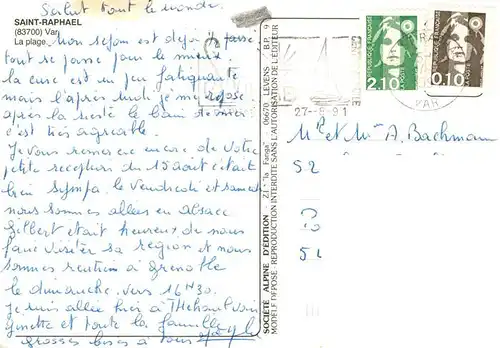 Salut tout le monde.
SAINT-RAPHAEL
(83700) Var
La plage.
Mon séjour est déjà passé
tout se passe pour le mieux
la cure est un peu fatiguante
mais l'après midi je me repose
après la sieste le bain de mer
c'est très agréable.
Je vous remercie encore de votre
petite reception du 15 août c'était
bien sympa. le Vendredi et samedi
nous sommes allés en Alsace
Gilbert était heureux de nous
faire visiter sa région et nous
sommes rentrés à Grenoble
le dimanche vers 16H30.
Je suis allée hier à voir
Ginette et toute la famille
grosses bises à tous
SOCIÉTÉ ALPINE D'ÉDITION - Z.I. "la Fanga" 06670 LEVENS B.F. 9
MODÈLE DÉPOSÉ - REPRODUCTION INTERDITE SANS L'AUTORISATION DE L'ÉDITEUR
REPUBLIQUE FRANÇAISE
LA POSTE
2,10
REPUBLIQUE FRANÇAISE
LA POSTE
0,10
VAR
27--8 91
Mr et Mme A. Bachmann
52
51